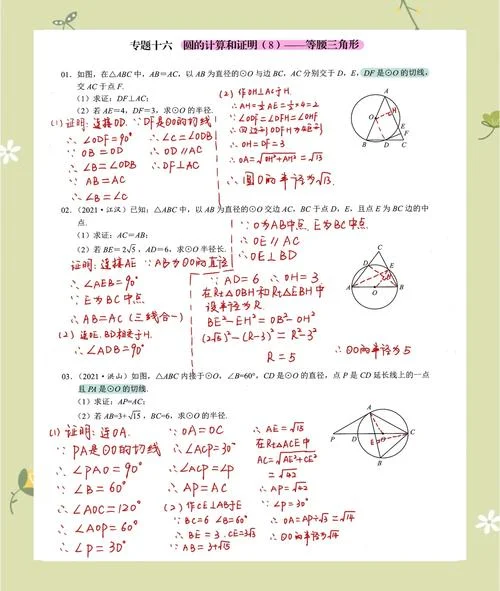 专题十六 圆的计算和证明(8)——等腰三角形
01. 如图,在△ABC中,AB=AC,以AB为直径的⊙O与边BC,AC分别交于D,E,DF是⊙O的切线,
交AC于点F.
(1)求证:DF⊥AC;
(2)若AE=4,DF=3,求⊙O的半径.
(1)证明:连接OD.
∵DF是⊙O的切线
∴∠ODF=90°
∵OB=OD
∴∠B=∠ODB
∵AB=AC
∴∠B=∠C
∴∠C=∠ODB
∴OD∥AC
∴DF⊥AC
(2)作OH⊥AC于H.
∴AH=½AE=½×4=2
∵∠ODF=∠DFH=∠OHF
∴四边形ODFH为矩形
∴OH=DF=3
∴OA=√OH²+AH²=√13
∴圆O的半径为√13.
A
O
H
E
F
B
D
C
02. (2021·江汉)已知:△ABC中,以AB为直径的⊙O交边AC,BC于点D,E,且点E为BC边的中
点.
(1)求证:AC=AB;
(2)若BE=2√5,AD=6,求⊙O半径长.
证明:连接AE
∵AB为⊙O的直径
∴∠AEB=90°
∵E为BC中点
∴AB=AC(三线合一)
(2)连OE,BD相交于H.
∴∠ADB=90°
∵O为AB中点,E为BC中点.
∴OE∥AC
∴OE⊥BD
∵AD=6 ∴OH=3
在Rt△OBH和Rt△EBH中
设半径为R
BE²-EH²=OB²-OH²
(2√5)²-(R-3)²=R²-3²
R=5
∴⊙O的半径为5
C
D
E
A
O
B
03. (2021·洪山)如图,△ABC内接于⊙O,∠B=60°,CD是⊙O的直径,点P是CD延长线上的一点
且PA是⊙O的切线.
(1)求证:AP=AC;
(2)若AB=3+√15,BC=6,求⊙O的半径.
(1)证明:连OA.
∵PA是⊙O的切线
∴∠PAO=90°
∵∠B=60°
∴∠AOC=120°
∴∠AOP=60°
∴∠P=30°
∵OA=OC
∴∠ACP=30°
∴∠ACP=∠P
∴AP=AC
(2)作CE⊥AB于E
∵BC=6 ∠B=60°
∴BE=3, CE=3√3
∵AB=3+√15
∴AE=√15
在Rt△ACE中
AC=√AE²+CE²
=√42
∴AP=√42
∵∠P=30°
∴OA=AP÷√3=√14
∴⊙O的半径为√14
A
P
D
E
O
C
B